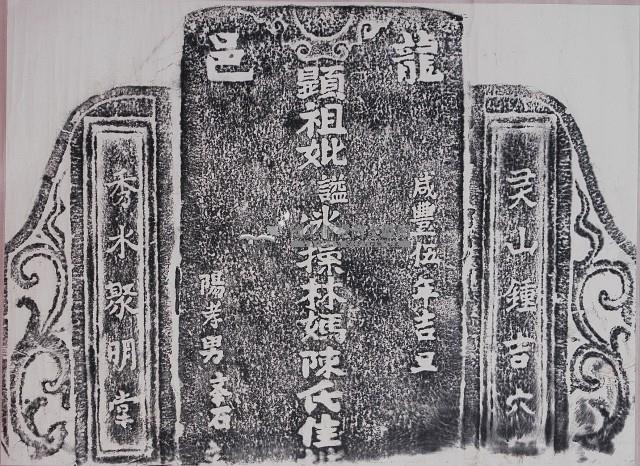 龍邑
咸豐伍年吉旦
顯祖妣謚冰操林媽陳氏佳
陽孝男
石
灵山鍾吉穴
秀水聚明堂